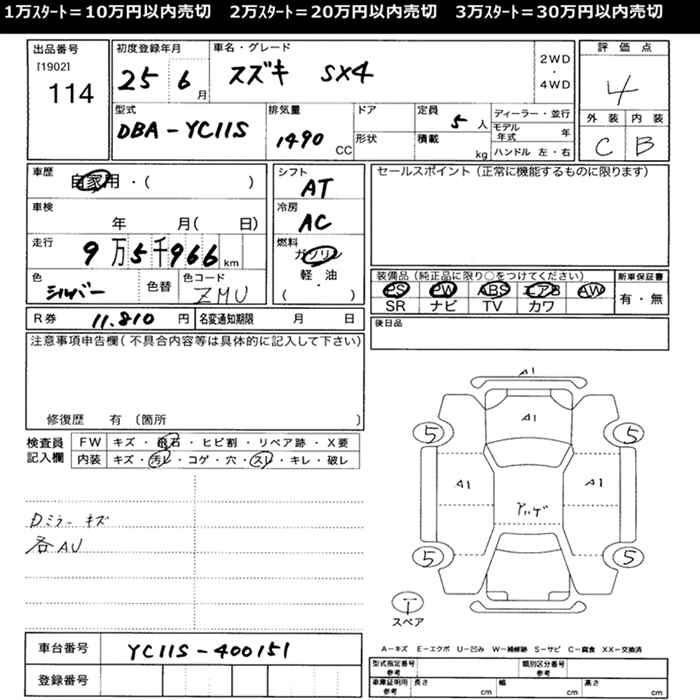 1万スタート=10万円以内売切 2万スタート=20万円以内売切 3万スタート=30万円以内売切
出品番号
[1902]
114
初度登録年月
25 6 月
車名・グレード
スズキ SX4
2WD
・
4WD
評価点
4
型式
DBA-YC11S
排気量
1490 CC
ドア
形状
定員
5 人
積載
kg
ディーラー・並行
モデル年式 年
ハンドル 左・右
外装 内装
C B
車歴
自家用・( )
車検
年 月( 日)
走行
9万5千966 km
色
シルバー
色替
色コード
ZMU
シフト
AT
冷房
AC
燃料
ガソリン
軽・油
( )
セールスポイント(正常に機能するものに限ります)
装備品(純正品に限り○をつけてください)
PS PW ABS エアB AW
SR ナビ TV カワ
新車保証書
有・無
R券 11.810 円
名変通知期限 月 日
後日品
注意事項申告欄(不具合内容等は具体的に記入して下さい)
修復歴 有 (箇所 )
検査員
記入欄
FW キズ・飛石・ヒビ割・リペア跡・X要
内装 キズ・汚レ・コゲ・穴・スレ・キレ・破レ
Dミラーキズ
各AU
A1
A1
5 5
A1 A1
アルゲ
5 5
T
スペア
車台番号 YC11S-400151
登録番号
A-キズ E-エクボ U-凹み W-補修跡 S-サビ C-腐食 XX-交換済
型式指定番号
参考
類別区分番号
参考
車庫証明用
参考
長さ cm 幅 cm 高さ cm